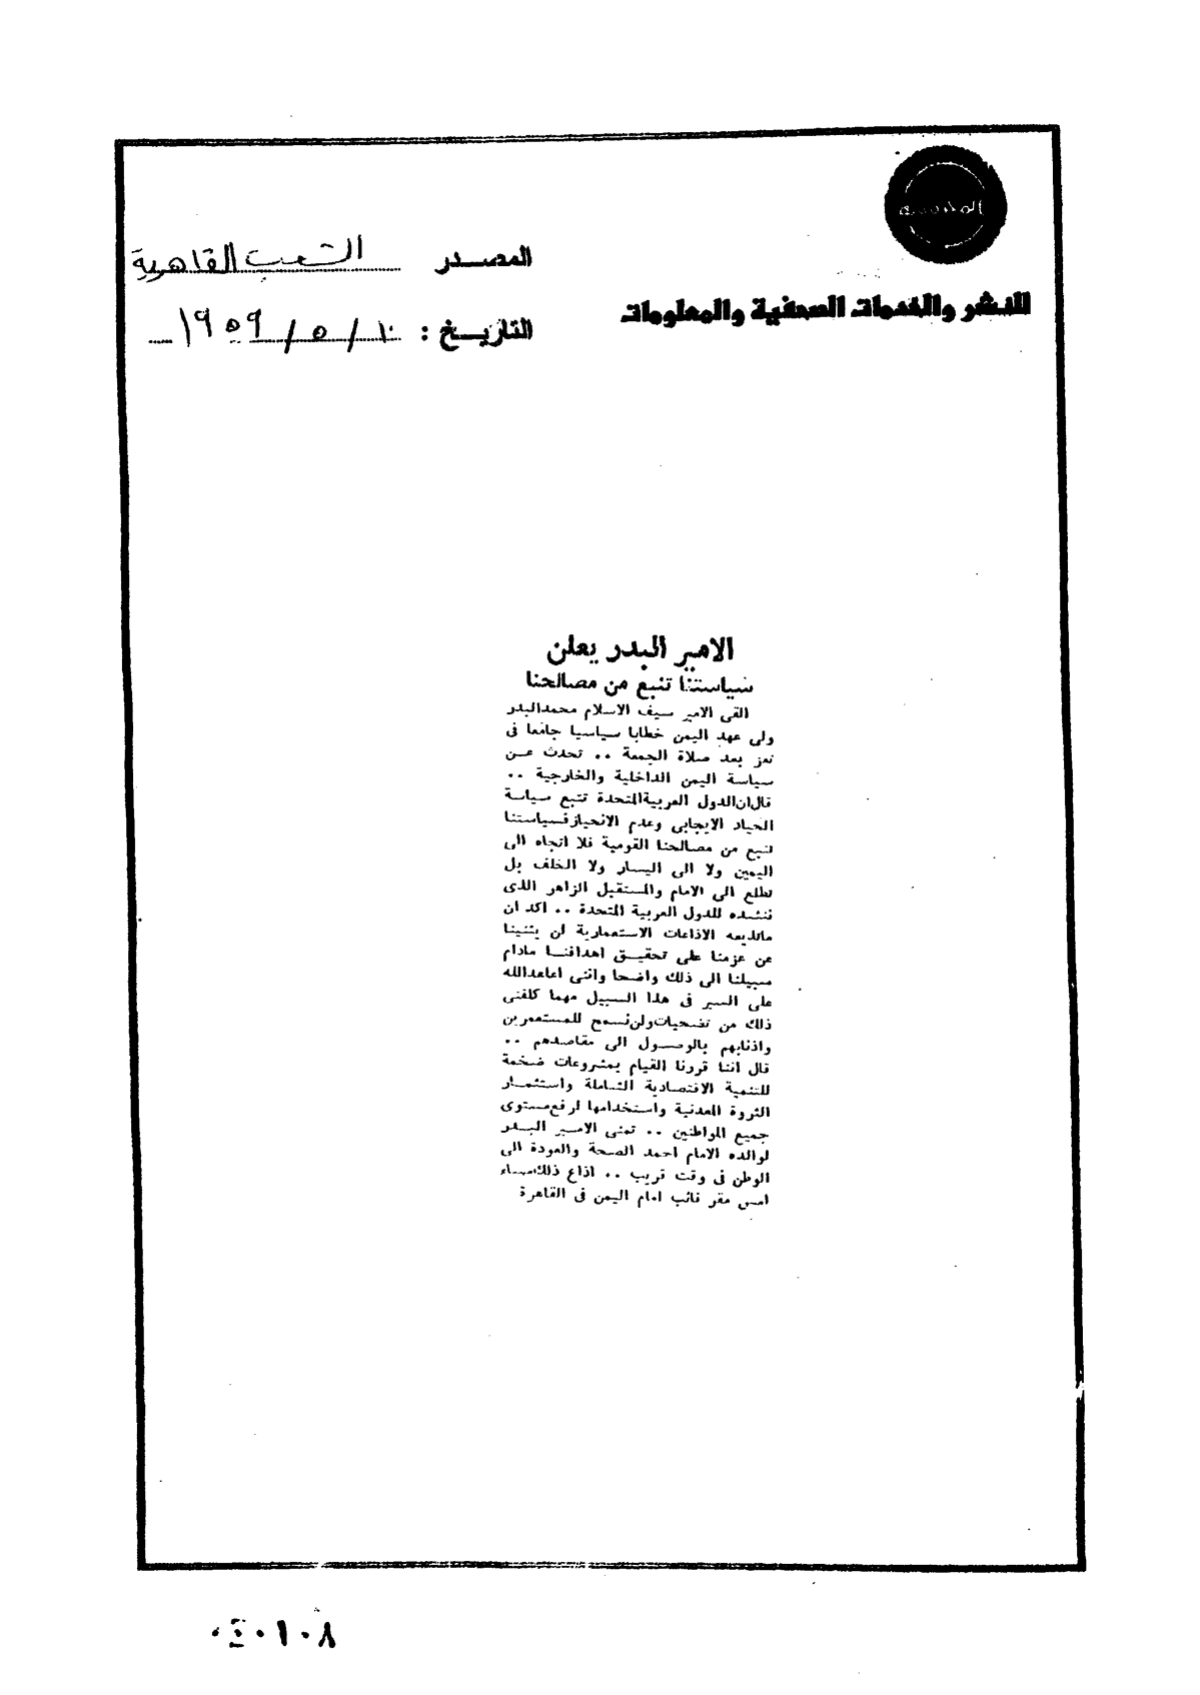 المصدر الشعب القاهرية
للنشر والخدمات الصحفية والمعلومات
التاريخ : ١٠ / ٥ / ١٩٥٩
الامير البدر يعلن
سياستنا تنبع من مصالحنا
القى الامير سيف الاسلام محمدالبدر
ولى عهد اليمن خطابا سياسيا جامعا فى
تعز بعد صلاة الجمعة .. تحدث عن
سياسة اليمن الداخلية والخارجية ..
قال ان الدول العربية المتحدة تتبع سياسة
الحياد الايجابى وعدم الانحياز فسياستنا
تنبع من مصالحنا القومية فلا اتجاه الى
اليمين ولا الى اليسار ولا الخلف بل
تطلع الى الامام والمستقبل الزاهر الذى
ننشده للدول العربية المتحدة .. اكد ان
ماتذيعه الاذاعات الاستعمارية لن يثنينا
عن عزمنا على تحقيق اهدافنا مادام
سبيلنا الى ذلك واضحا واننى اعاهدالله
على السير فى هذا السبيل مهما كلفنى
ذلك من تضحيات ولن نسمح للمستعمرين
واذنابهم بالوصول الى مقاصدهم ..
قال اننا قررنا القيام بمشروعات ضخمة
للتنمية الاقتصادية الشاملة واستثمار
الثروة المعدنية واستخدامها لرفع مستوى
جميع المواطنين .. تمنى الامير البدر
لوالده الامام احمد الصحة والعودة الى
الوطن فى وقت قريب .. اذاع ذلك مساء
امس مقر نائب امام اليمن فى القاهرة